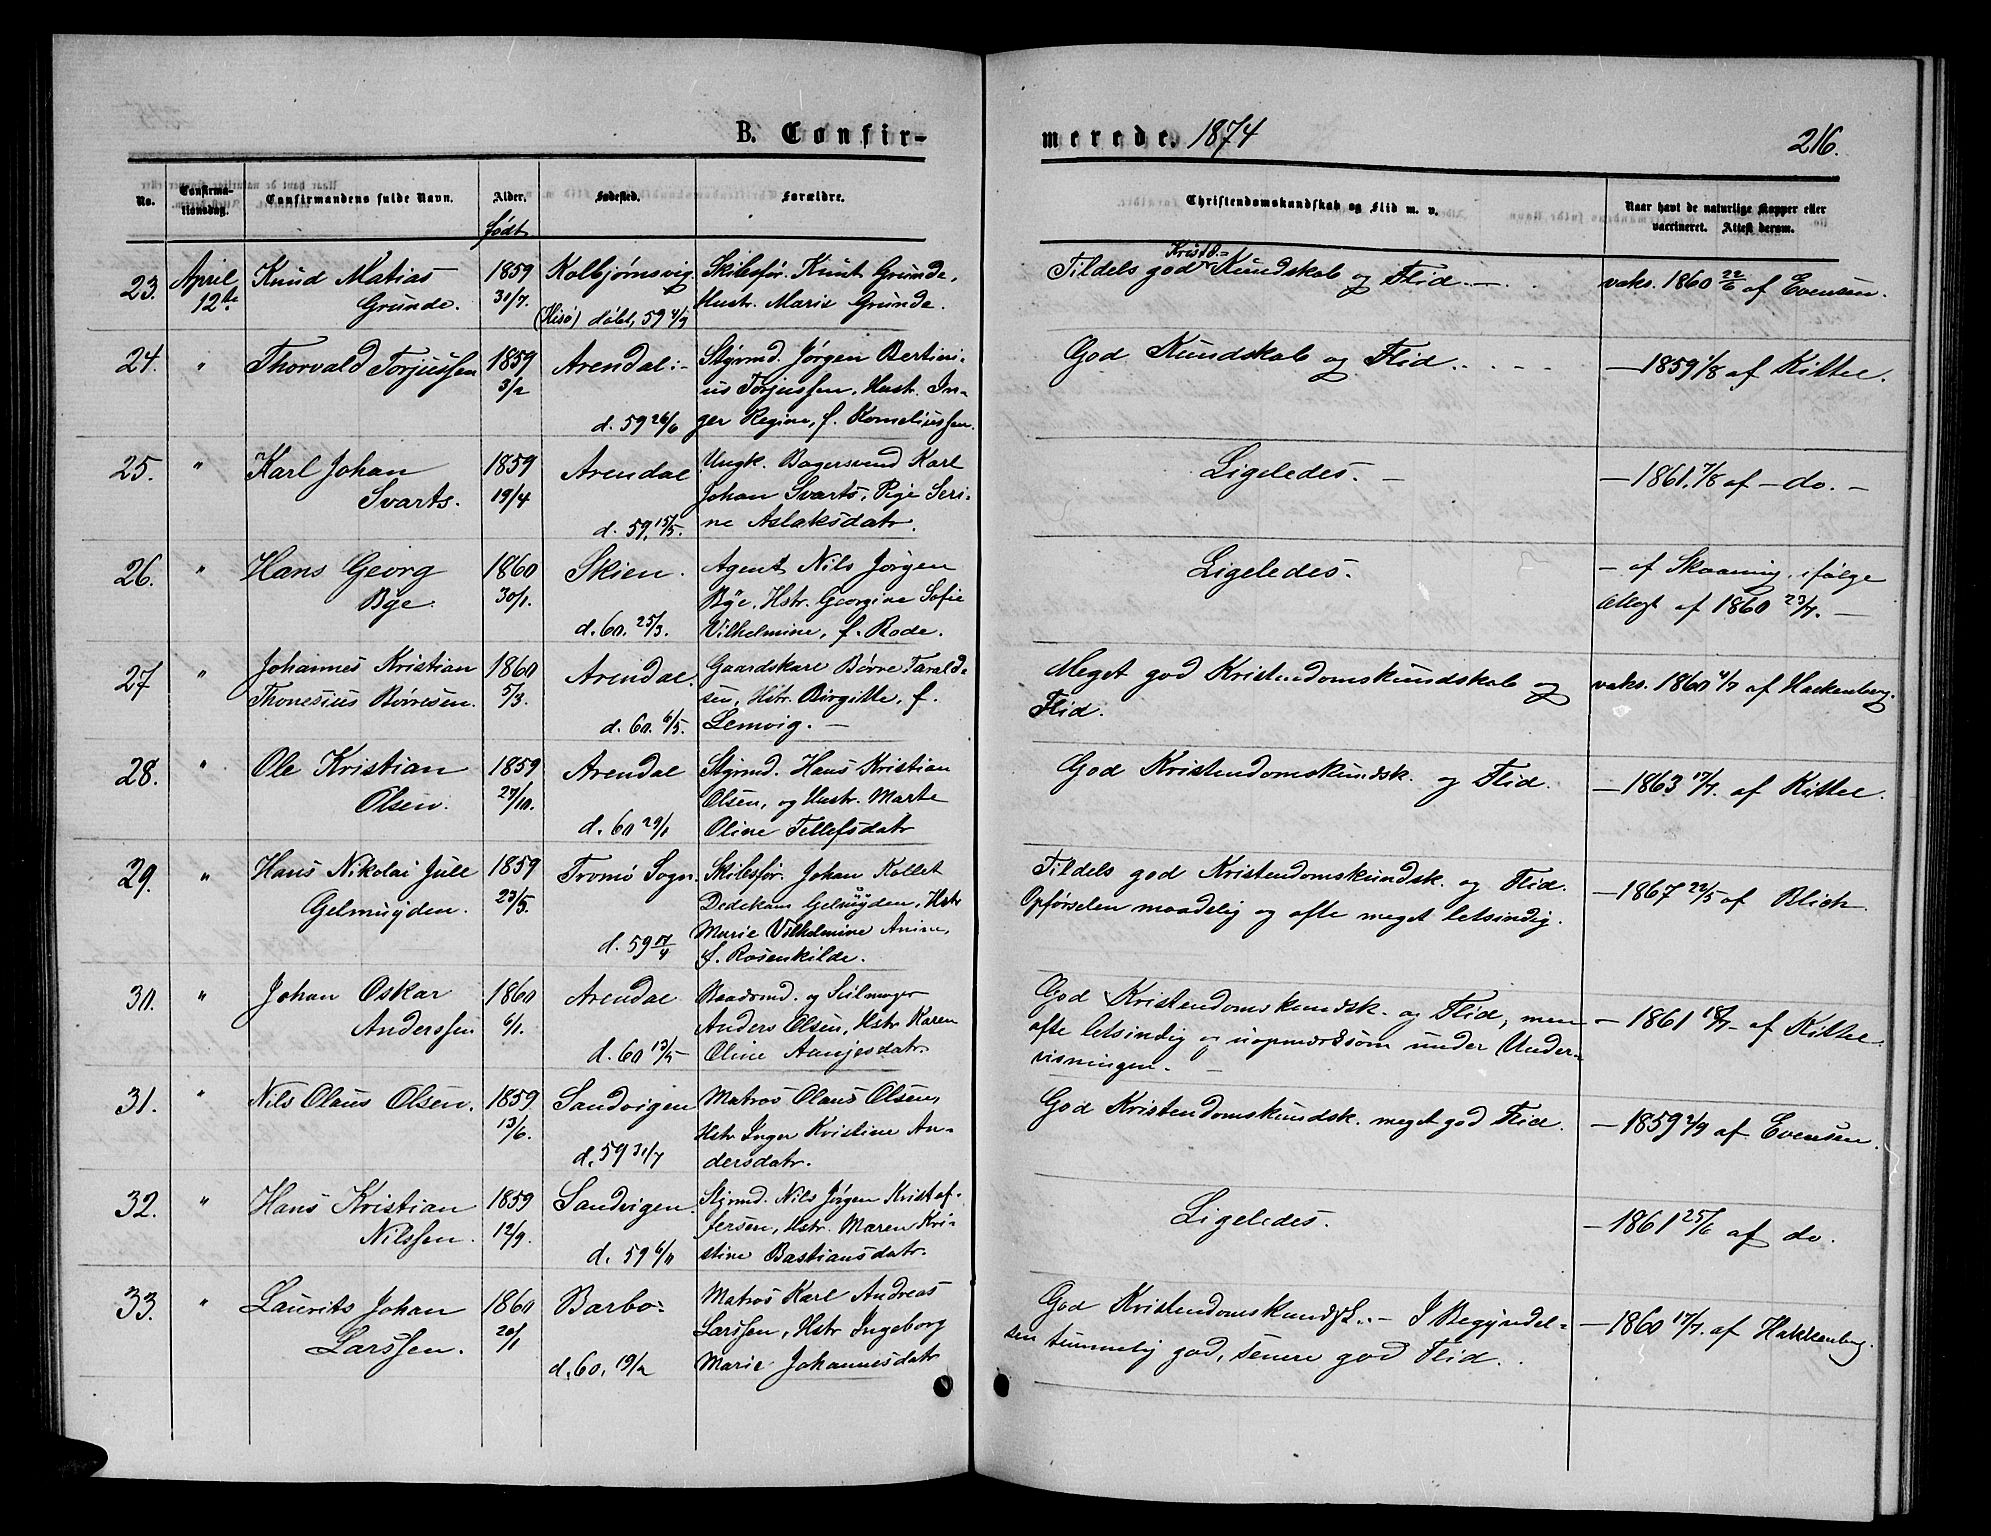 B. Confir-
merede. 1874
216.
No.
Confirma-
tionsdag.
Confirmandens fulde Navn.
Alder.
født
Fødested.
Forældre.
Christendomskundskab og Flid m. v.
Naar havt de naturlige Kopper eller
vaccineret. Attest derom.
23. April 12te
Knud Matias
Grunde.
1859
31/7.
Kolbjørnsvig
(Hisø) døbt, 59 4/9
Skibsfør. Knut Grunde,
Hustr. Marie Grunde.
Kristd.-
Tildels god Kundskab og Flid.
vaks. 1860 22/6 af Evensen.
24. "
Thorvald Torjussen
1859
3/2
Arendal
d. 59 26/6
Styrmd. Jørgen Bertini-
us Torjussen, Hustr. In-
ger Regine, f. Korneliussen.
God Kundskab og Flid.
— 1859 1/8 af Kittel.
25. "
Karl Johan
Svarts.
1859
19/4
Arendal
d. 59, 15/5.
Ungk. Bagersvend Karl
Johan Svarts, Pige Seri-
ne Aslaksdatr.
Ligeledes.
— 1861. 7/8 af — do. —
26. "
Hans Georg
Bye.
1860
30/1.
Skien.
d. 60. 25/3.
Agent Nils Jørgen
Bye, Hstr. Georgine Sofie
Vilhelmine, f. Rode.
Ligeledes.
— af Skaaning, ifølge
Attest af 1860 23/7. —
27 "
Johannes Kristian
Thonesius Børresen.
1860
5/3.
Arendal.
d. 60. 6/5.
Gaardskarl Børre Tarald-
sen, Hstr. Birgitte, f.
Lemvig. —
Meget god Kristendomskundskab og
Flid.
vaks. 1860 4/7 af Hackenberg.
28. "
Ole Kristian
Olsen.
1859
27/10.
Arendal
d. 60 29/1
Styrmd. Hans Kristian
Olsen, og Hustr. Marte
Oline Tellefsdatr
God Kristendomskundsk. og Flid.
— 1863 17/7. af Kittel.
29. "
Hans Nikolai Juel
Gelmuyden.
1859
23/5.
Tromø Sogn.
d. 59 17/4
Skibsfør. Johan Kollet
Dedekam Gelmuyden, Hstr
Marie Vilhelmine Anine,
f. Rosenkilde.
Tildels god Kristendomskundsk. og Flid.
Opførselen maadelig og ofte meget letsindig.
— 1867 22/5 af Blich.
30. "
Johan Oskar
Anderssen
1860
6/1.
Arendal
d. 60 13/5
Baadsmd. og Seilmager
Anders Olsen, Hstr Karen
Oline Aanjesdatr.
God Kristendomskundsk. og Flid, men
ofte letsindig og uopmærksom under Under-
visningen. —
— 1861 18/7 — af Kittel.
31. "
Nils Olaus Olsen.
1859
13/6.
Sandvigen
d. 59 31/7
Matros Olaus Olsen,
Hstr Inger Kristine An-
dersdatr.
God Kristendomskundsk. meget god Flid.
— 1859 2/9 af Evensen.
32. "
Hans Kristian
Nilssen.
1859
12/9.
Sandvigen.
d. 59 6/11
Styrmd. Nils Jørgen Kristof-
fersen, Hstr. Maren Kri-
stine Bastiansdatr.
Ligeledes.
— 1861 25/6 af do.
33. "
Laurits Johan
Larssen.
1860
20/1
Barbo
d. 60, 19/2
Matros Karl Andreas
Larssen, Hstr Ingeborg
Marie Johannesdatr
God Kristendomskundsk. — I Begyndel-
sen temmelig god, senere god Flid.
— 1860 17/7. af Hakkenberg.